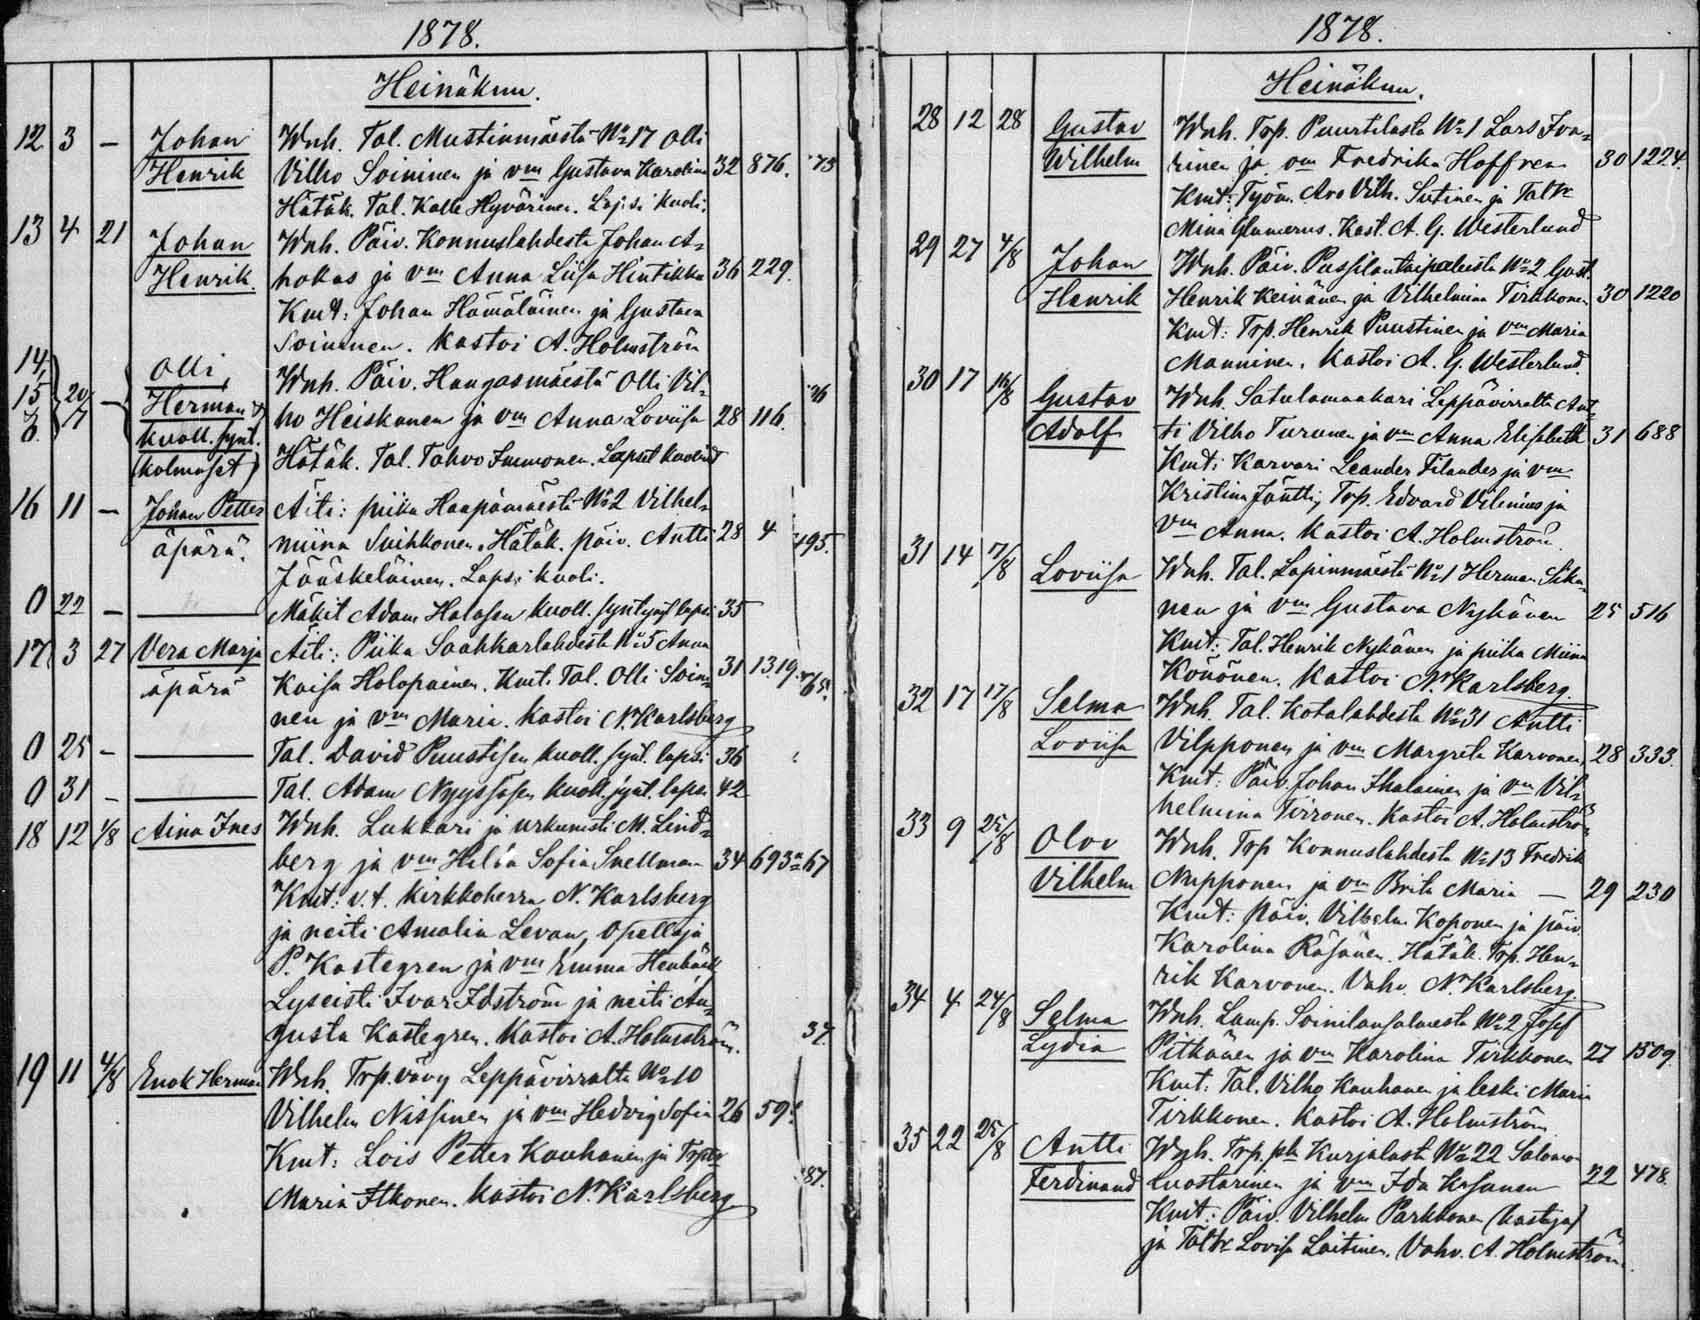 1878.
Heinäkuu.
12 3 – Johan Wnh. Tal. Mustinmäestä No 17 Olli
Henrik Vilho Soininen ja vm Gustava Karolina 32 876.
Hätäk. Tal. Kalle Hyvärinen. Lapsi kuoli.
13 4 21 Johan Wnh. Päiv. Konnuslahdesta Johan A-
Henrik. hokas ja vm Anna Liisa Hintikka 36 229.
Kmt: Johan Hämäläinen ja Gustava
Soininen. Kastoi A. Holmström
14, Olli, Wnh. Päiv. Hangasmäestä Olli Vil-
15 20/7 – Herman & ho Heiskanen ja vm Anna Loviisa 28 116.
0. kuoll. synt. Hätäk. Tal. Tahvo Immonen. Lapset kuolivat
(kolmoset)
16 11 – Johan Petter Äiti: piika Haapamäestä No 2 Vilhel-
äpärä. miina Suihkonen. Hätäk. päiv. Antti 28 4
Jääskeläinen. Lapsi kuoli.
0 22 – Mäkit Adam Halosen kuoll. syntynyt lapsi 35
17 3 27 Vera Maria Äiti: Piika Saahkarlahdesta No 5 Anna
äpärä Kaisa Holopainen. Kmt. Tal. Olli Soini- 31 1319.
nen ja vm Maria. Kastoi N. Karlsberg
0 25 – Tal. David Puustisen kuoll. synt. lapsi 36
0 31 – Tal. Adam Nyyssösen kuoll. synt. lapsi 42
18 12 1/8 Aina Ines Wnh. Lukkari ja urkunisti M. Lind-
berg ja vm Hilda Sofia Snellman 34 693
Kmt: v.t. kirkkoherra N. Karlsberg
ja neiti Amalia Levan, Opettaja
P. Kastegren ja vm Emma
Lyseisti Ivar Idström ja neiti Au-
gusta Kastegren. Kastoi A. Holmström.
19 11 4/8 Enok Herman Wnh. Trp. vävy Leppävirralta No 10
Vilhelm Nissinen ja vm Hedvig Sofia 26 59.
Kmt: Lois Petter Kauhanen ja Trp tr
Maria Itkonen. Kastoi N. Karlsberg
73
76
195.
65.
67
37.
87.
1878.
Heinäkuu.
28 12 28 Gustav Wnh. Trp. Puurtilasta No 1 Lars Iva-
Wilhelm rinen ja vm Fredrika Hoffren 30 1224.
Kmt: Työm. Aro Vilh. Sutinen ja Tal tr
Mina Glumerus. Kast. A. G. Westerlund
29 27 4/8 Johan Wnh. Päiv. Pussilantaipaleesta No 2 Gust.
Henrik Henrik Keinänen ja Vilhelmina Tirkkonen 30 1220
Kmt: Trp. Henrik Puustinen ja vm Maria
Manninen. Kastoi A. G. Westerlund.
30 17 16/8 Gustav Wnh. Satulamaakari Leppävirralta Ant-
Adolf ti Vilho Turunen ja vm Anna Elisabeth 31 688
Kmt: Karvari Leander Filander ja vm
Kristina Jäntti, Trp. Edvard Vilenius ja
vm Anna. Kastoi A. Holmström.
31 14 17/8 Loviisa Wnh. Tal. Lapinmäestä No 1 Herman Sika-
nen ja vm Gustava Nykänen 25 516
Kmt: Tal. Henrik Nykänen ja piika Miina
Könönen. Kastoi N. Karlsberg.
32 17 17/8 Selma Wnh. Tal. Kotalahdesta No 31 Antti
Loviisa Vilpponen ja vm Margreta Karvonen 28 333.
Kmt: Päiv. Johan Ihalainen ja vm Vil-
helmina Tirronen. Kastoi A. Holmström
33 9 25/8 Olov Wnh. Trp Konnuslahdesta No 13 Fredrik
Vilhelm Nupponen ja vm Brita Maria – 29 230
Kmt: Päiv. Vilhelm Koponen ja päiv.
Karolina Räsänen. Hätäk. Trp. Hen-
rik Karvonen. Vahv. N. Karlsberg.
34 4 24/8 Selma Wnh. Lamp. Soinilansalmesta No 2 Josef
Lydia Pitkänen ja vm Karolina Tirkkonen 27 1509.
Kmt: Tal. Vilho Kauhanen ja leski Maria
Tirkkonen. Kastoi A. Holmström
35 22 25/8 Antti Wnh. Trp. pk Kurjalasta No 22 Salomon
Ferdinand Luostarinen ja vm Ida Kosunen 22 478.
Kmt: Päiv. Vilhelm Parkkonen (kastaja)
ja Tal tr Lovisa Laitinen. Vahv. A. Holmström.